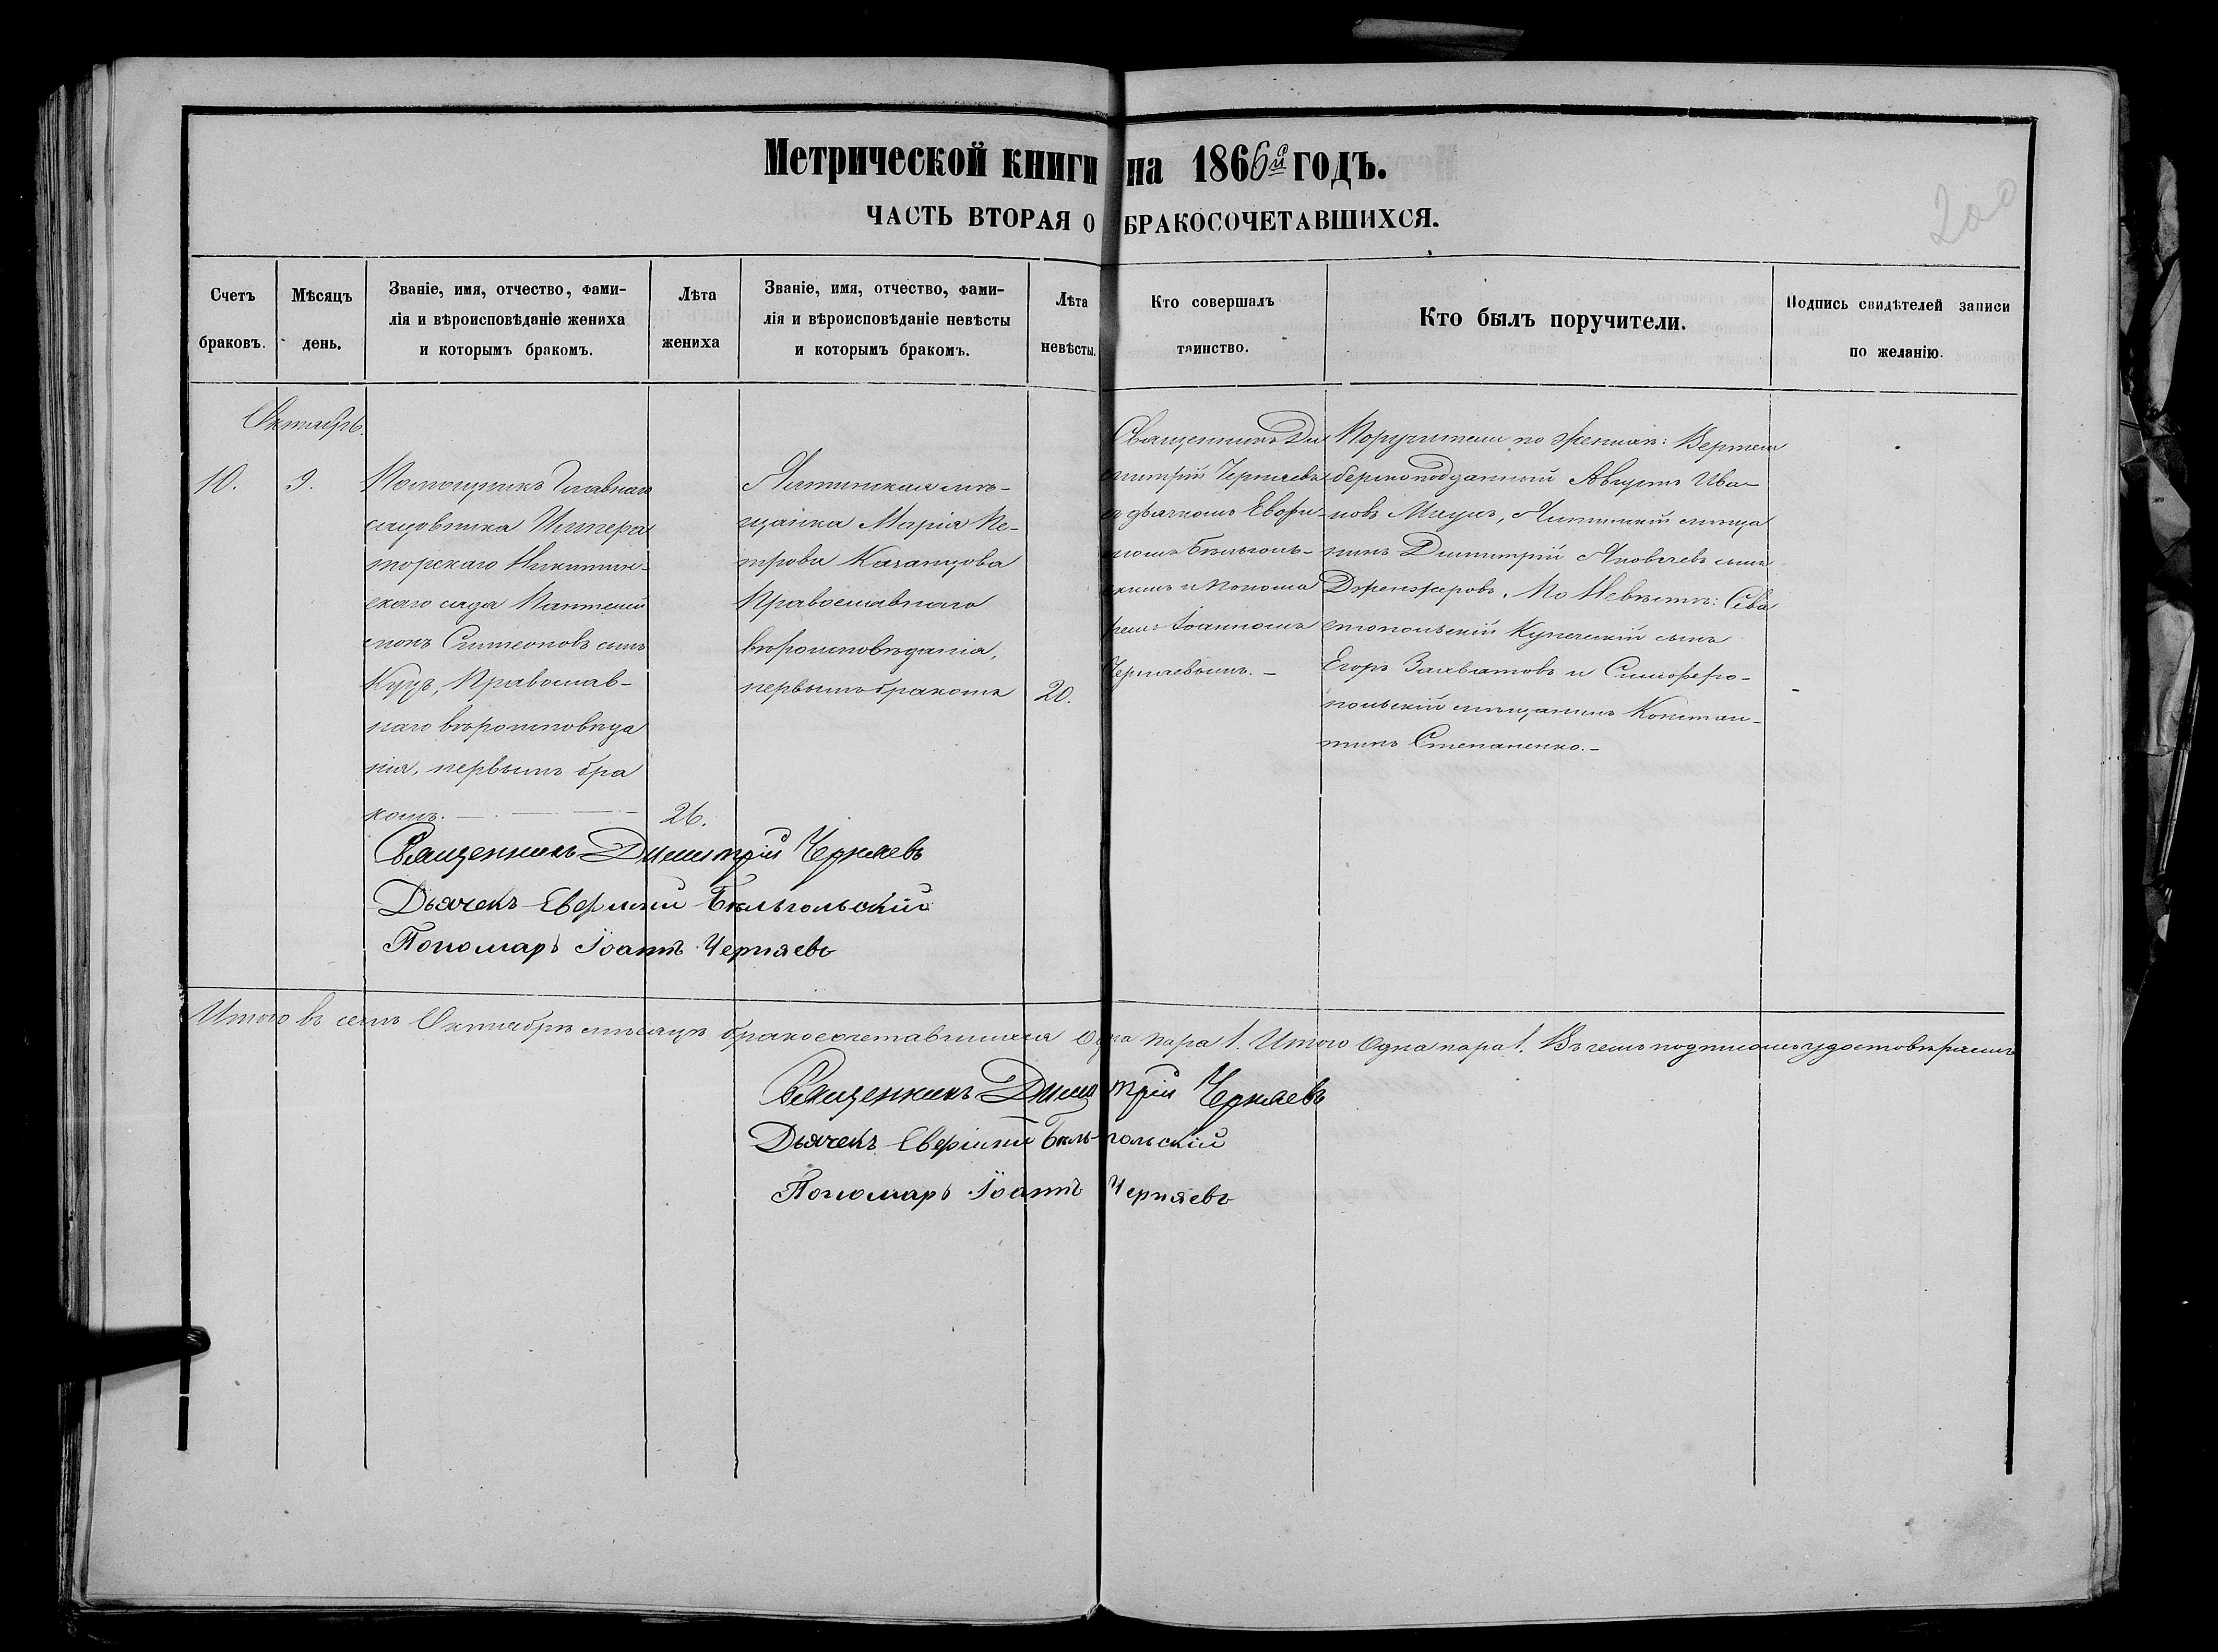 Метрической книги на 1866й годъ.
ЧАСТЬ ВТОРАЯ О БРАКОСОЧЕТАВШИХСЯ.
200
Счетъ
браковъ.
Мѣсяцъ
день.
Званіе, имя, отчество, фами-
лія и вѣроисповѣданіе жениха
и которымъ бракомъ.
Лѣта
жениха
Званіе, имя, отчество, фами-
лія и вѣроисповѣданіе невѣсты
и которымъ бракомъ.
Лѣта
невѣсты.
Кто совершалъ
таинство.
Кто былъ поручители.
Подпись свидѣтелей записи
по желанію.
Октябрь.
10.
9.
Помощникъ Главнаго
садовника Импера
торскаго Никитин-
скаго сада Пантелей
монъ Симеоновъ сынъ
Куцъ, Православ-
наго вѣроисповѣда
нія, первымъ бра
комъ.
26.
Ялтинская мѣ-
щанка Марія Пе-
трова Казанцова
Православнаго
вѣроисповѣданія,
первымъ бракомъ
20.
Священникъ Ди
митрій Черняевъ
съ дьячкомъ Евфи-
міемъ Бѣльголь-
скимъ и Понома
ремъ Іоанномъ
Черняевымъ.-
Поручители по Женихѣ: Вертем
бергскоподданный Августъ Ива-
новъ Ялтинскій мѣща
нинъ Димитрій Яковлевъ сынъ
По Невѣстѣ: Сева
стопольскій Купеческій сынъ
Егоръ и Симферо-
польскій мѣщанинъ Констан-
тинъ Степаненко.-
Священникъ Димитрій Черняевъ
Дьячекъ Евфимій Бѣльгольскій
Пономарь Іоаннъ Черняевъ
Итого въ семъ Октябрѣ мѣсяцѣ бракосочетавшихся Одна пара 1. Итого Одна пара 1. Въ чемъ подписомъ удостовѣряемъ
Священникъ Димитрій Черняевъ
Дьячекъ Евфимій Бѣльгольскій
Пономарь Іоаннъ Черняевъ